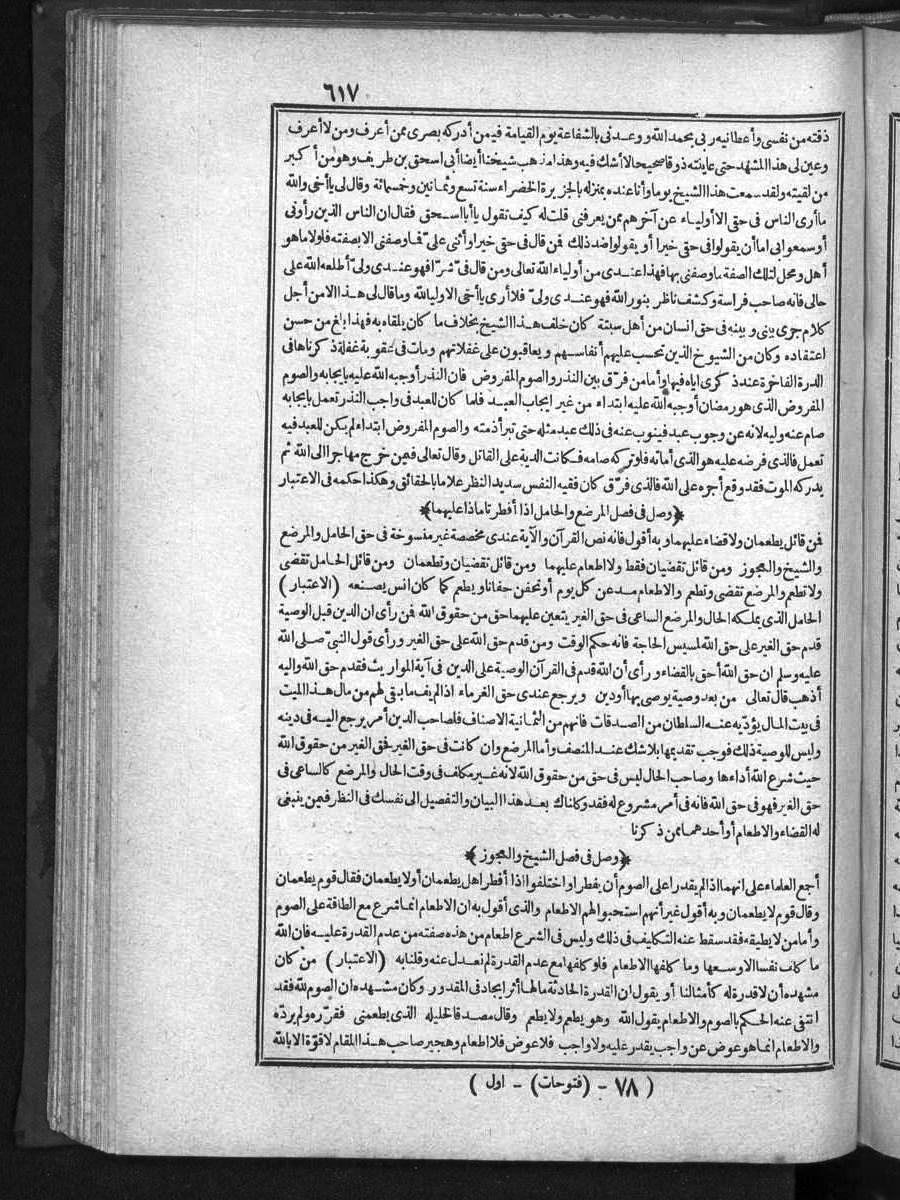 ٦١٧
ذقته من نفسى وأعطانيه ربى بحمد الله ووعدنى بالشفاعة يوم القيامة فيمن أدركه بصرى ممن أعرف ومن لا أعرف
وعين لى هذا المشهد حتى عاينته ذوقا صحيحا لا أشك فيه وهذا مذهب شيخنا أيضا أبى اسحق بن طريف وهو من أكبر
من لقيته ولقد سمعت هذا الشيخ يوما وأنا عنده بمنزله بالجزيرة الخضراء سنة تسع وثمانين وخمسمائة وقال لى يا أخى والله
ما أرى الناس فى حتى الا أولياء عن آخرهم ممن يعرفنى قلت له كيف تقول يا أبا اسحق فقال ان الناس الذين رأونى
أو سمعوا بى اما أن يقولوا فى حقى خيرا أو يقولوا ضد ذلك فمن قال فى حقى خيرا وأثنى علىّ فما وصفنى الا بصفته فلولا ما هو
أهل ومحل لتلك الصفة ما وصفنى بها فهذا عندى من أولياء الله تعالى ومن قال فىّ شرّا فهو عندى ولىّ أطلعه الله على
حالى فانه صاحب فراسة وكشف ناظر بنور الله فهو عندى ولىّ فلا أرى يا أخى الا وليا لله وما قال لى هذا الا من أجل
كلام جرى بينى وبينه فى حق انسان من أهل سبتة كان خلف هذا الشيخ بخلاف ما كان يلقاه به فهذا بلغ من حسن
اعتقاده وكان من الشيوخ الذين تحسب عليهم أنفاسهم ويعاقبون على غفلاتهم ومات فى عقوبة غفلة ذكرناها فى
الدرة الفاخرة عند ذكرى اياه فيها وأما من فرّق بين النذر والصوم المفروض فان النذر أوجبه الله عليه بايجابه والصوم
المفروض الذى هو رمضان أوجبه الله عليه ابتداء من غير ايجاب العبد فلما كان للعبد فى واجب النذر تعمل بايجابه
صام عنه وليه لانه عن وجوب عبد فينوب عنه فى ذلك عبد مثله حتى تبرأ ذمته والصوم المفروض ابتداء لم يكن للعبد فيه
تعمل فالذى فرضه عليه هو الذى أماته فلو تركه صامه فكانت الدية على القاتل وقال تعالى فيمن خرج مهاجرا الى الله ثم
يدركه الموت فقد وقع أجره على الله فالذى فرّق كان فقيه النفس سديد النظر علاما بالحقائق وهكذا حكمه فى الاعتبار
﴿وصل فى فصل المرضع والحامل اذا أفطرتا ماذا عليهما﴾
فمن قائل يطعمان ولا قضاء عليهما وبه أقول فانه نص القرآن والآية عندى مخصصة غير منسوخة فى حق الحامل والمرضع
والشيخ والعجوز ومن قائل تقضيان فقط ولا اطعام عليهما ومن قائل تقضيان وتطعمان ومن قائل الحامل تقضى
ولا تطعم والمرضع تقضى وتطعم والاطعام مد عن كل يوم أو تحفن حفانا ويطعم كما كان انس يصنعه (الاعتبار)
الحامل الذى يملكه الحال والمرضع الساعى فى حق الغير يتعين عليهما حق من حقوق الله فمن رأى ان الدين قبل الوصية
قدم حق الغير على حق الله لمسيس الحاجة فانه حكم الوقت ومن قدم حق الله على حق الغير ورأى قول النبىّ صلى الله
عليه وسلم ان حق الله أحق بالقضاء ورأى أن الله قدم فى القرآن الوصية على الدين فى آية المواريث فقدم حق الله واليه
أذهب قال تعالى من بعد وصية يوصى بها أو دين ويرجع عندى حق الغرماء اذا لم يف ما بقى لهم من مال هذا الميت
فى بيت المال يؤدّيه عنه السلطان من الصدقات فانهم من الثمانية الاصناف فلصاحب الدين أمر يرجع اليه فى دينه
وليس للوصية ذلك فوجب تقديمها بلا شك عند المنصف وأما المرضع وان كانت فى حق الغير فحق الغير من حقوق الله
حيث شرع الله أداءها وصاحب الحال ليس فى حق من حقوق الله لانه غير مكلف فى وقت الحال والمرضع كالساعى فى
حق الغير فهو فى حق الله فانه فى أمر مشروع له فقد وكلناك بعد هذا البيان والتفصيل الى نفسك فى النظر فيمن ينبغى
له القضاء والاطعام أو أحدهما ممن ذكرنا
﴿وصل فى فصل الشيخ والعجوز﴾
أجمع العلماء على انهما اذا لم يقدرا على الصوم أن يفطرا واختلفوا اذا أفطرا هل يطعمان أولا يطعمان فقال قوم يطعمان
وقال قوم لا يطعمان وبه أقول غير أنهم استحبوا لهم الاطعام والذى أقول به ان الاطعام انما شرع مع الطاقة على الصوم
وأما من لا يطيقه فقد سقط عنه التكليف فى ذلك وليس فى الشرع اطعام من هذه صفته من عدم القدرة عليه فان الله
ما كلف نفسا الا وسعها وما كلفها الاطعام فلو كلفها مع عدم القدرة لم نعدل عنه وقلنا به (الاعتبار) من كان
مشهده أن لا قدرة له كأمثالنا أو يقول ان القدرة الحادثة ما لها أثر ايجاد فى المقدور وكان مشهده ان الصوم لله فقد
انتفى عنه الحكم بالصوم والاطعام بقول الله وهو يطعم ولا يطعم وقال مصدقا لخليله الذى يطعمنى فقرّره ولم يردّه
والاطعام انما هو عوض عن واجب يقدر عليه ولا واجب فلا عوض فلا اطعام وهجير صاحب هذا المقام لا قوّة الا بالله
(٧٨ - (فتوحات) - اول)